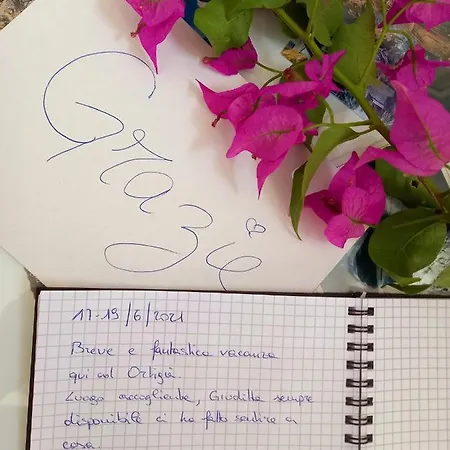 Grazie
17-19/6/2021
Breve e fantastica vacanza
qui ad Ortigia.
Luogo accogliente, Giuditta sempre
disponibile ci ha fatto sentire a
casa.